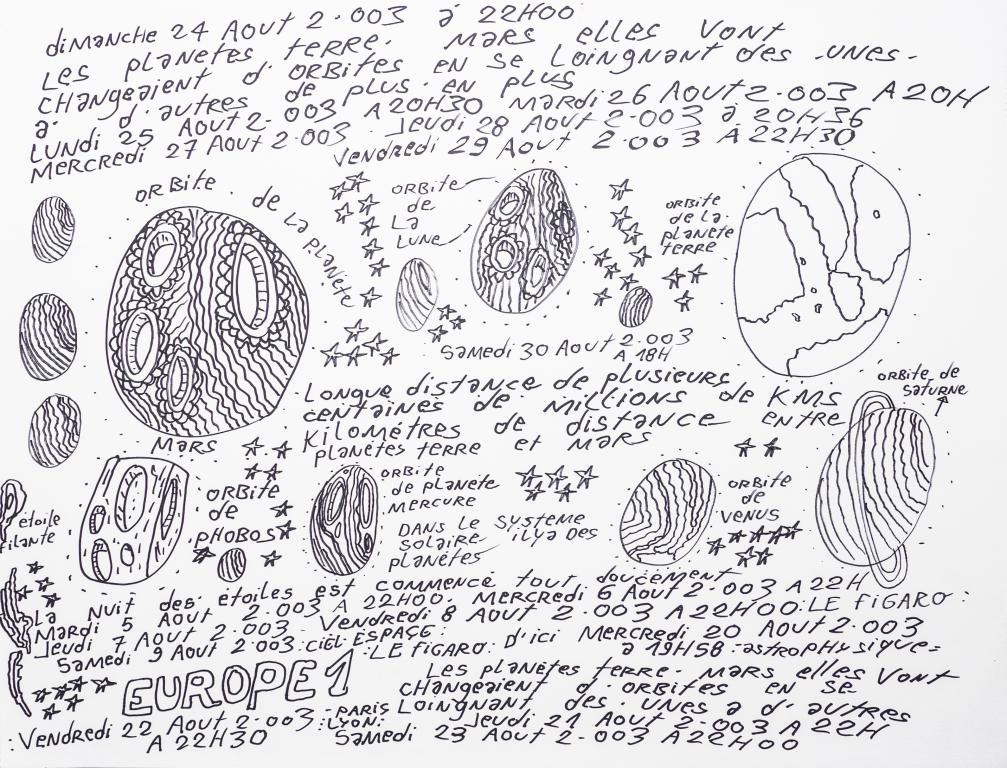 dimanche 24 Aout 2.003 à 22H00
Les planetes terre. mars elles vont
changeaient d'orbites en se Loingnant des .unes.
à d'autres de plus en plus
Lundi 25 Aout 2.003 A 20H30 Mardi 26 Aout 2.003 A 20H
Mercredi 27 Aout 2.003. Jeudi 28 Aout 2.003 à 20H36
Vendredi 29 Aout 2.003 A 22H30
orbite de La Planete
Mars
orbite
de
La
Lune
orbite
de la
planete
terre
Samedi 30 Aout 2.003
A 18H
Longue distance de plusieurs
centaines de millions de KMS
Kilométres de distance entre
planétes terre et mars
orbite de
Saturne
étoile
filante
orbite
de
PHOBOS
orbite
de planete
mercure
Dans Le systeme
solaire il ya Des
planétes
orbite
de
Venus
La nuit des étoiles est commencé tout doucement
Mardi 5 Aout 2.003 A 22H00. Mercredi 6 Aout 2.003 A 22H
Jeudi 7 Aout 2.003. Vendredi 8 Aout 2.003 A 22H00: LE FiGARO:
Samedi 9 Aout 2.003: ciel ESPACE:
:LE FiGARO: d'ici Mercredi 20 Aout 2.003
à 19H58 :astrophysique=
EUROPE 1
Les planétes terre. mars elles vont
changeaient d'orbites en se
Loingnant des .unes a d'autres
:Vendredi 22 Aout 2.003 :-PARIS
A 22H30
LYON:
Jeudi 21 Aout 2.003 A 22H
Samedi 23 Aout 2.003 A 22H00